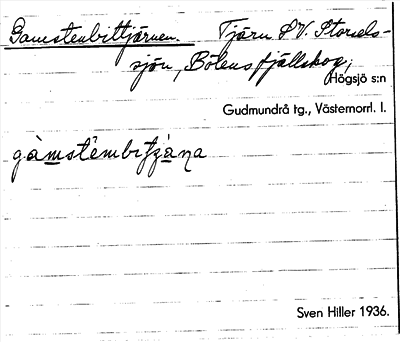 Gamstenbittjärnen. Tjärn SV. Storsels-
sjön, Bölens fjällskog,
Högsjö s:n
Gudmundrå tg., Västernorrl. l.
gàmstembitjà̀na
Sven Hiller 1936.